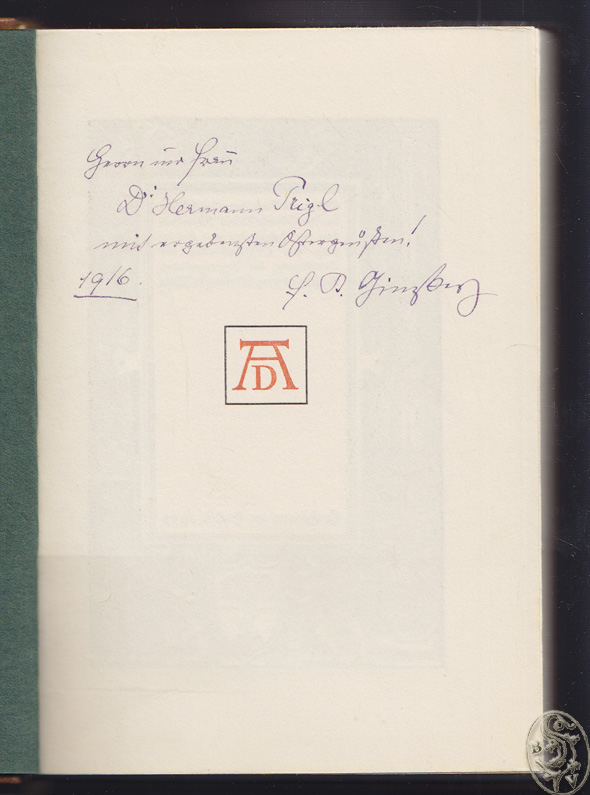 Herrn und Frau
Dr Hermann Trigl
mit ergebensten Ostergrüßen!
1916.
Ginzkey
AD